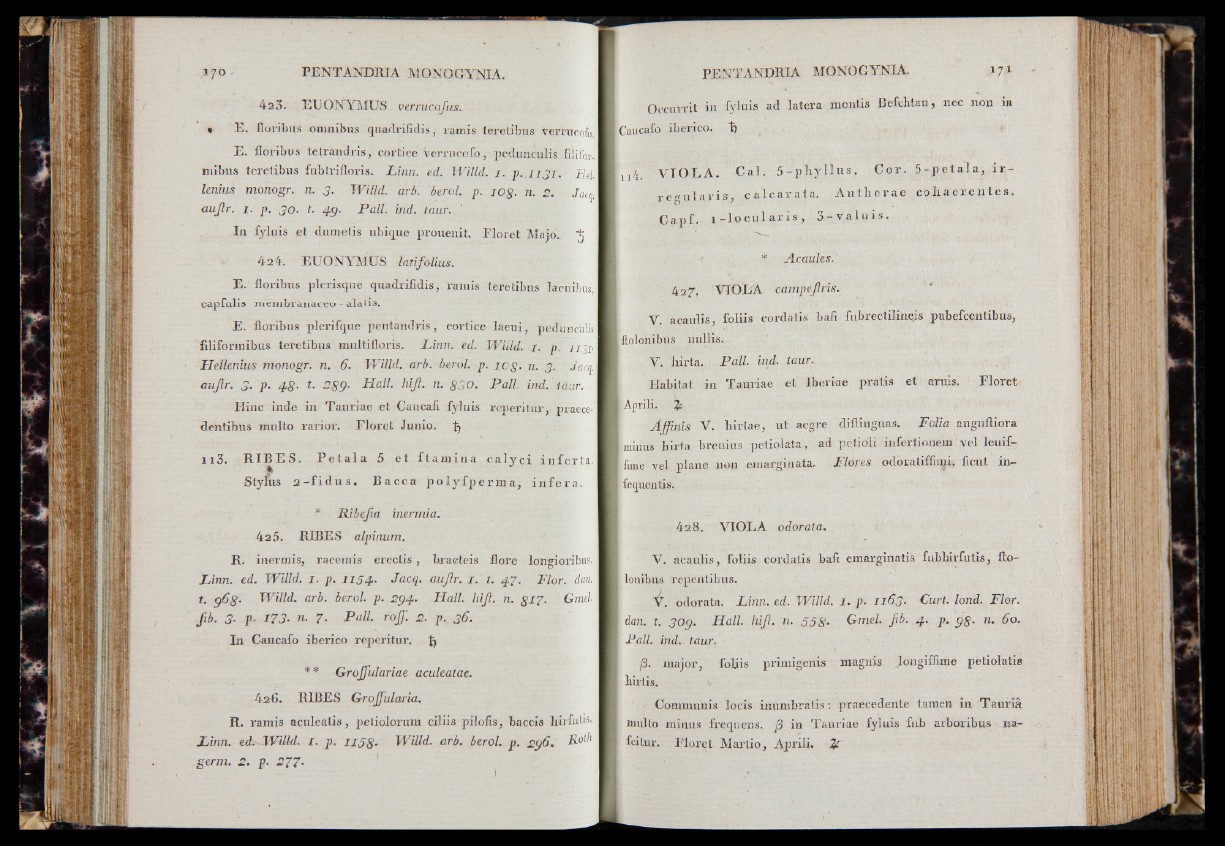 170 PENTANDRIA MONOGYNIA.
423. EUONYMUS verrucoſus.
E. floribus omnibus quadrifidis, ramis teretibus verrucoſis.
E. floribus tetrandris, cortice verrucoſo, pedunculis filifor-
mibus teretibus ſubtrifloris. Linn. ed. Willd. 1. p. 1131. Hel-
lenius monogr. n. 3. Willd. arb. berol. p. 108. n. 2. Jacq.
auſtr. 1. p. 30. t. 49. Pall. ind. taur.
In ſyluis et dumetis ubique prouenit. Floret Majo. ♄
424. EUONYMUS latifolius.
E. floribus plerisque quadrifidis, ramis teretibus laeuibus,
capſulis membranaceo-alatis.
E. floribus plerifque pentandris, cortice laeui, pedunculis
filiformibus teretibus multifloris. Linn. ed. Willd. 1. p. 1131.
Hellenius monogr. n. 6. Willd. arb. berol. p. 108. n. 3. Jacq.
auſtr. 3. p. 48. t. 289. Hall. hiſt. n. 830. Pall. ind. taur.
Hinc inde in Tauriae et Caucaſi ſyluis reperitur, praece-
dentibus multo rarior. Floret Junio. ♄
113. RIBES. Petala 5 et ſtamina calyci inſerta.
Stylus 2-fidus. Bacca polyſperma, infera.
* Ribeſia inermia.
425. RIBES alpinum.
R. inermis, racemis erectis, bracteis flore longioribus.
Linn. ed. Willd. 1. p. 1154. Jacq. auſtr. 1. t. 47. Flor. dan.
t. 968. Willd. arb. berol. p. 294. Hall. hiſt. n. 817. Gmel.
ſib. 3. p. 173. n. 7. Pall. roſſ. 2. p. 36.
In Caucaſo iberico reperitur. ♄
** Groſſulariae aculeatae.
426. RIBES Groſſularia.
R. ramis aculeatis, petiolorum ciliis piloſis, baccis hirſutis.
Linn. ed. Willd. 1. p. 1158. Willd. arb. berol. p. 296. Roth
germ. 2. p. 277.
PENTANDRIA MONOGYNIA. 171
Occurrit in ſyluis ad latera montis Beſchtau, nec non in
Caucaſo iberico. ♄
114. VIOLA. Cal. 5-phyllus. Cor. 5-petala, ir-
regularis, calcarata. Antherae cohaerentes.
Capſ. 1-locularis, 3-valuis.
* Acaules.
427. VIOLA campeſtris.
V. acaulis, foliis cordatis baſi ſubrectilineis pubeſcentibus,
ſtolonibus nullis.
V. hirta. Pall. ind. taur.
Habitat in Tauriae et Iberiae pratis et aruis. Floret
Aprili. ♃
Affinis V. hirtae, ut aegre diſtinguas. Folia anguſtiora
minus hirta breuius petiolata, ad petioli inſertionem vel leuiſ-
ſime vel plane non emarginata. Flores odoratiſſimi, ſicut in-
ſequentis.
428. VIOLA odorata.
V. acaulis, foliis cordatis baſi emarginatis ſubhirſutis, ſto-
lonibus repentibus.
V. odorata. Linn. ed. Willd. 1. p. 1163. Curt. lond. Flor.
dan. t. 309. Hall. hiſt. n. 558. Gmel. ſib. 4. p. 98. n. 60.
Pall. ind. taur.
β. major, foliis primigenis magnis longiſſime petiolatis
hirtis.
Communis locis inumbratis: praecedente tamen in Tauriâ
multo minus frequens. β in Tauriae ſyluis ſub arboribus na-
ſcitur. Floret Martio, Aprili. ♃